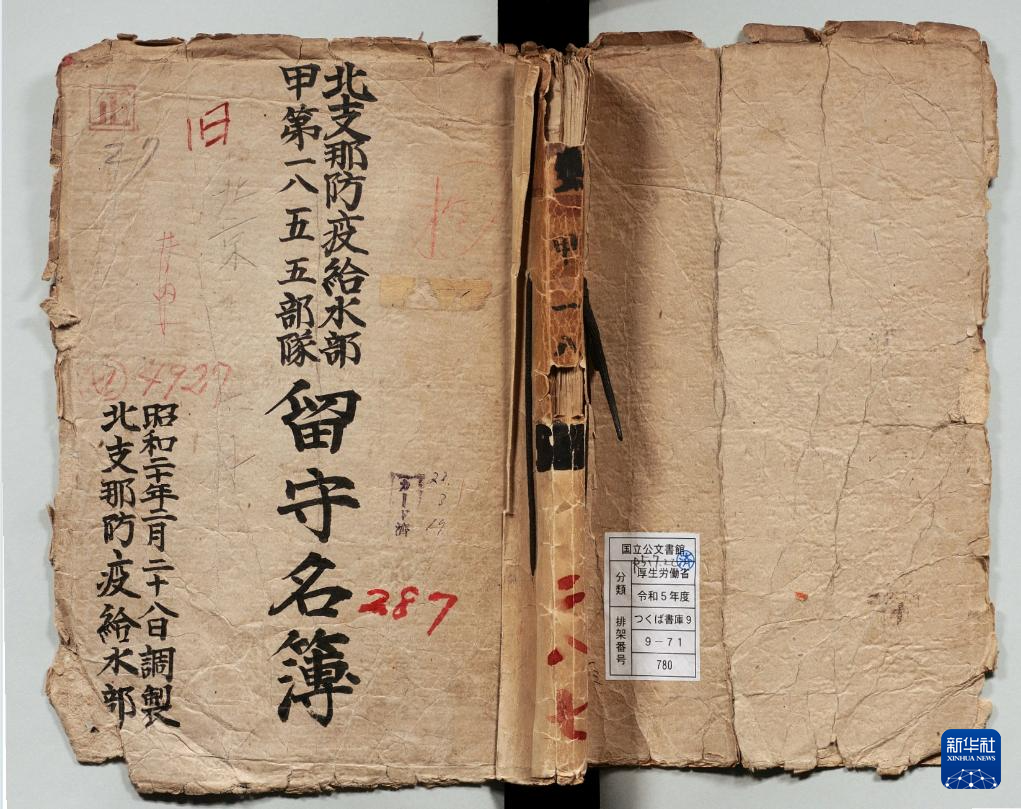 北支那防疫給水部
甲第一八五五部隊
留守名簿
昭和二十年二月二十八日調製
北支那防疫給水部
旧
北京
4927
27
287
カード済
甲
一八
二八七
国立公文書館
分類
厚生労働省
令和5年度
排架番号
つくば書庫9
9-71
780
新华社
XINHUA NEWS